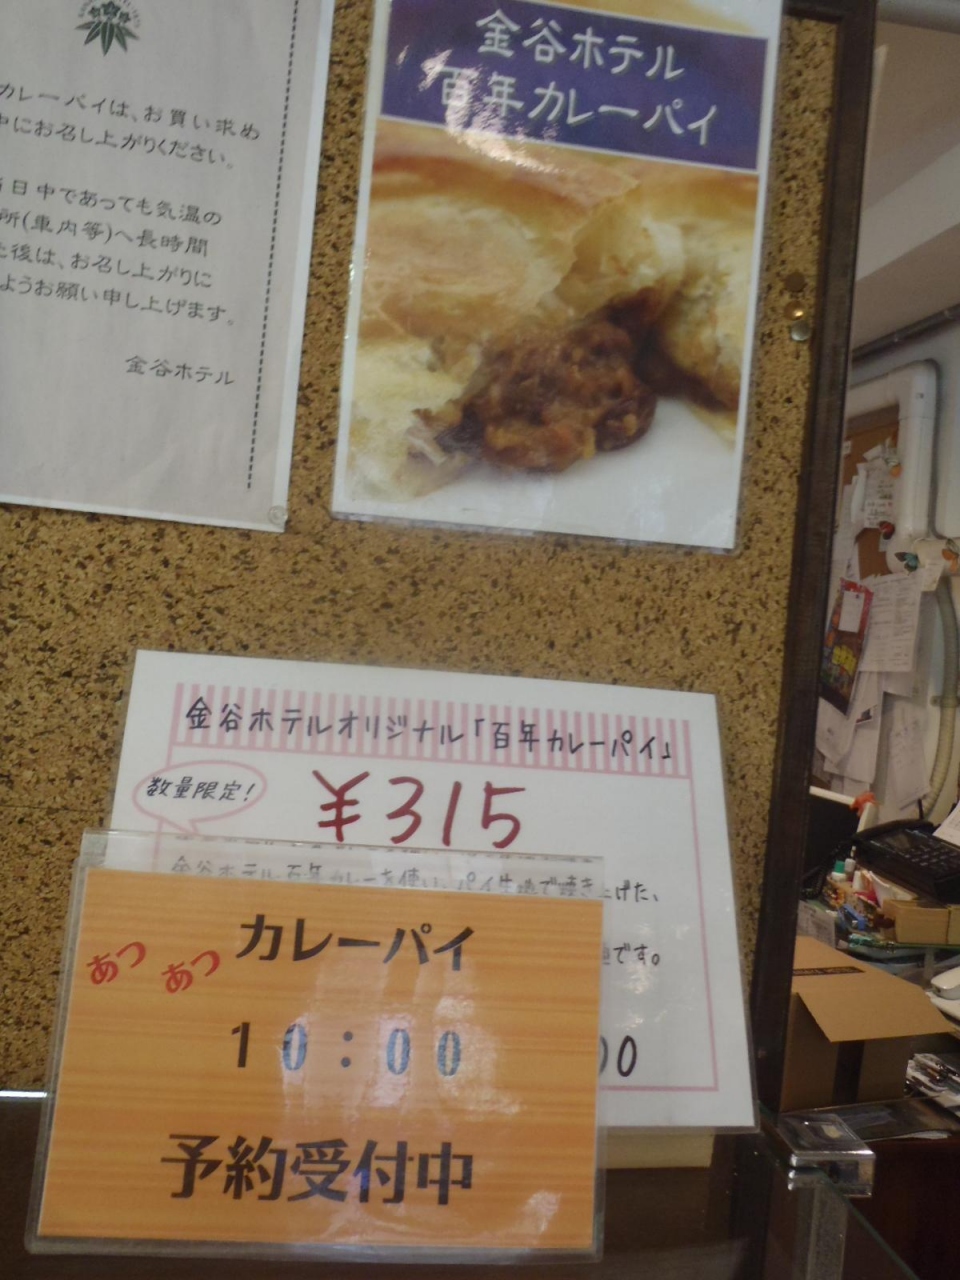 カレーパイは、お買い求め
中にお召し上がりください。
日中であっても気温の
所(車内等)へ長時間
後は、お召し上がりに
ようお願い申し上げます。
金谷ホテル
金谷ホテル
百年カレーパイ
金谷ホテルオリジナル「百年カレーパイ」
数量限定!
¥315
金谷ホテル百年カレーを使い、パイ生地で焼き上げた、
です。
00
あつ あつ カレーパイ
10:00
予約受付中